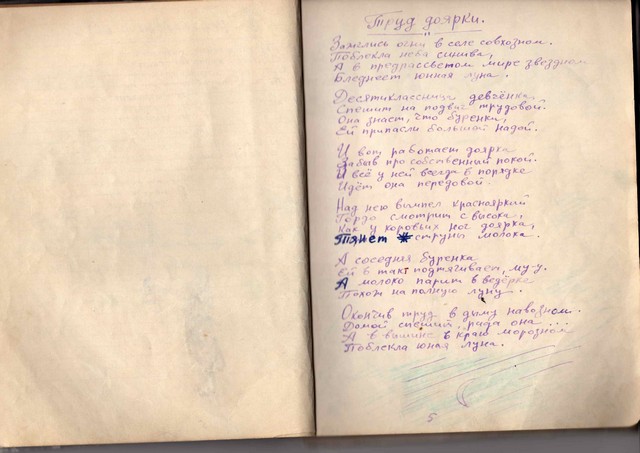 Труд доярки.
Зажглись огни в селе совхозном.
Поблекла неба синива,
А в предрассветом мире звездном
Бледнеет юнная луна.
Десятиклассница девчёнка
Спешит на подвиг трудовой.
Она знает, что буренки,
Ей припасли большой надой.
И вот работает доярка
Забыв про собственный покой.
И всё у ней всегда в порядке
Идёт она передовой.
Над нею вымпел краснояркий
Гордо смотрит с высока,
Как у коровьих ног доярка,
Тянет струны молока.
А соседняя буренка
Ей в такт подтягивает, му-у.
А молоко парит в ведёрке
Похож на полную луну.
Окончив труд в дыму навозном.
Домой спешит, рада она...
А в вышине в краю морозном
Поблекла юная луна.
5